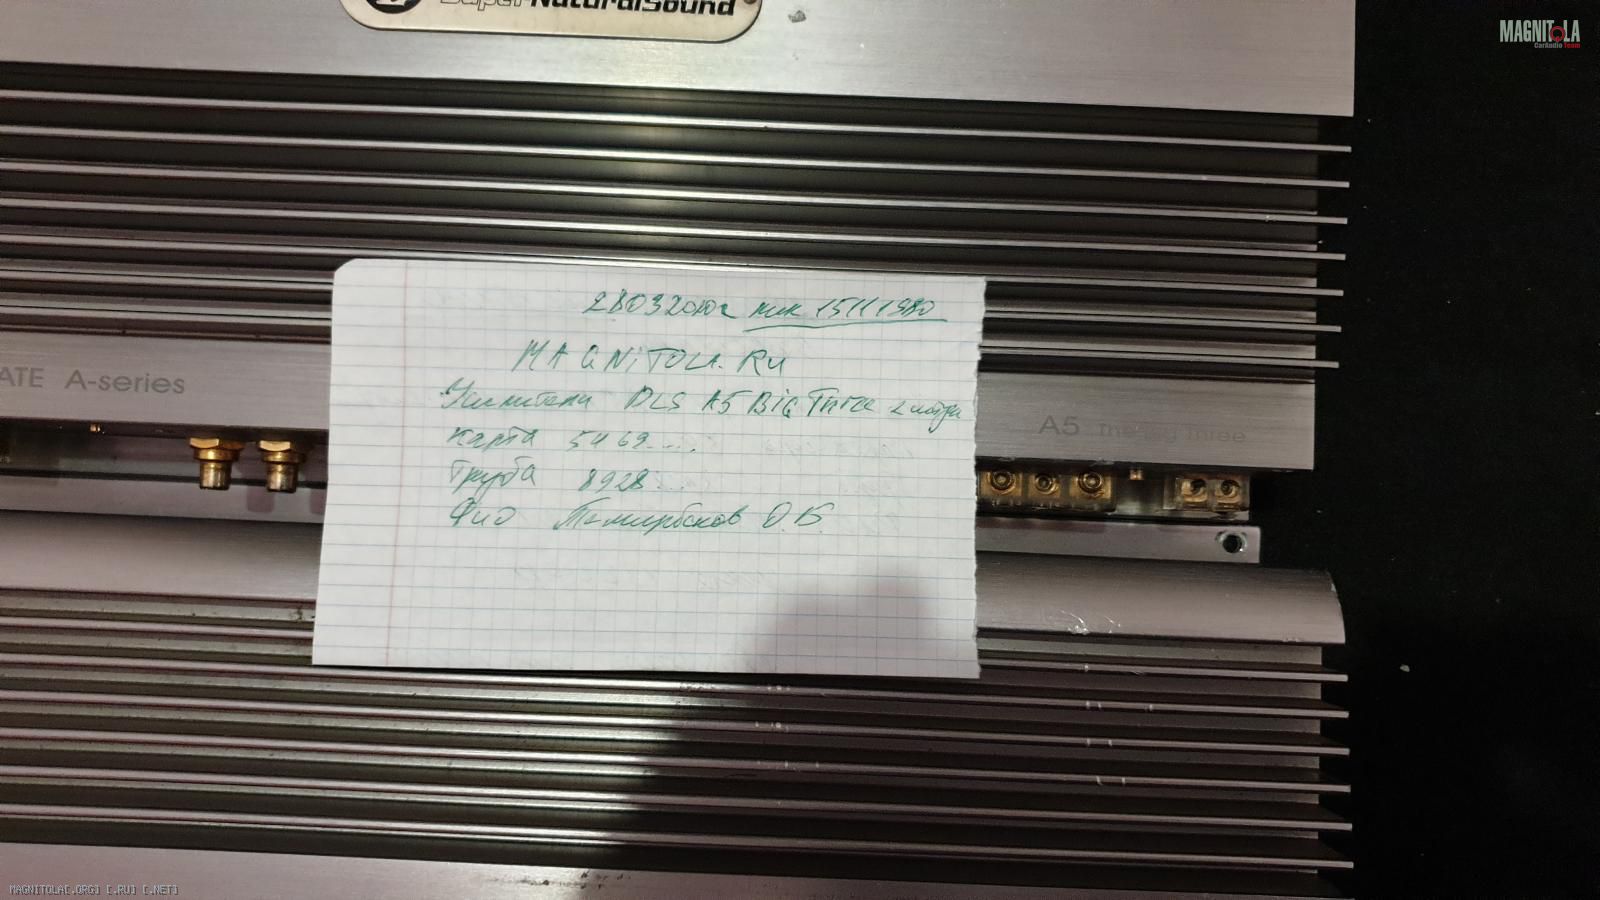 Super-NaturalSound
MAGNITOLA
CarAudio Team
28032020г ник 15111980
MAGNITOLA.RU
Усилители DLS A5 BiG Three 2 штуки
карта 5469....
труба 8928....
Фио О.Б.
ATE A-series
A5 The Big Three
MAGNITOLA[.ORG] [.RU] [.NET]